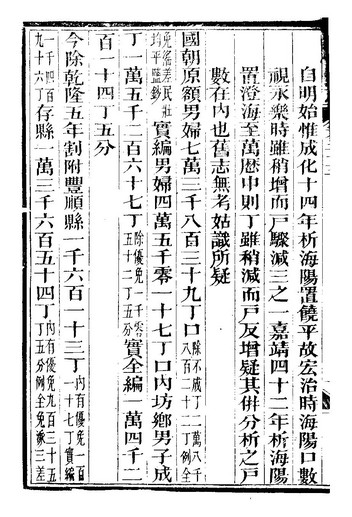 自明始惟成化十四年析海陽置饒平故宏治時海陽口數
視永樂時雖稍增而戸驟減三之一嘉靖四十二年析海陽
置澄海至萬歷中則丁雖稍減而戸反增疑其併分析之戸
數在內也舊志無考姑識所疑
國朝原額男婦七萬三千八百三十九丁口除不成丁二萬八千八百二十二丁例全
免徭差民壯均平鹽鈔實編男婦四萬五千零一十七丁口內坊鄉男子成
丁一萬五千二百六十七丁除優免一千零五十二丁五分實全編一萬四千二
百一十四丁五分
今除乾隆五年割附豐順縣一千六百一十三丁內有優免一百一十七丁實編
一千四百九十六丁存縣一萬三千六百五十四丁內有優免九百三十五丁五分例全免徭三差